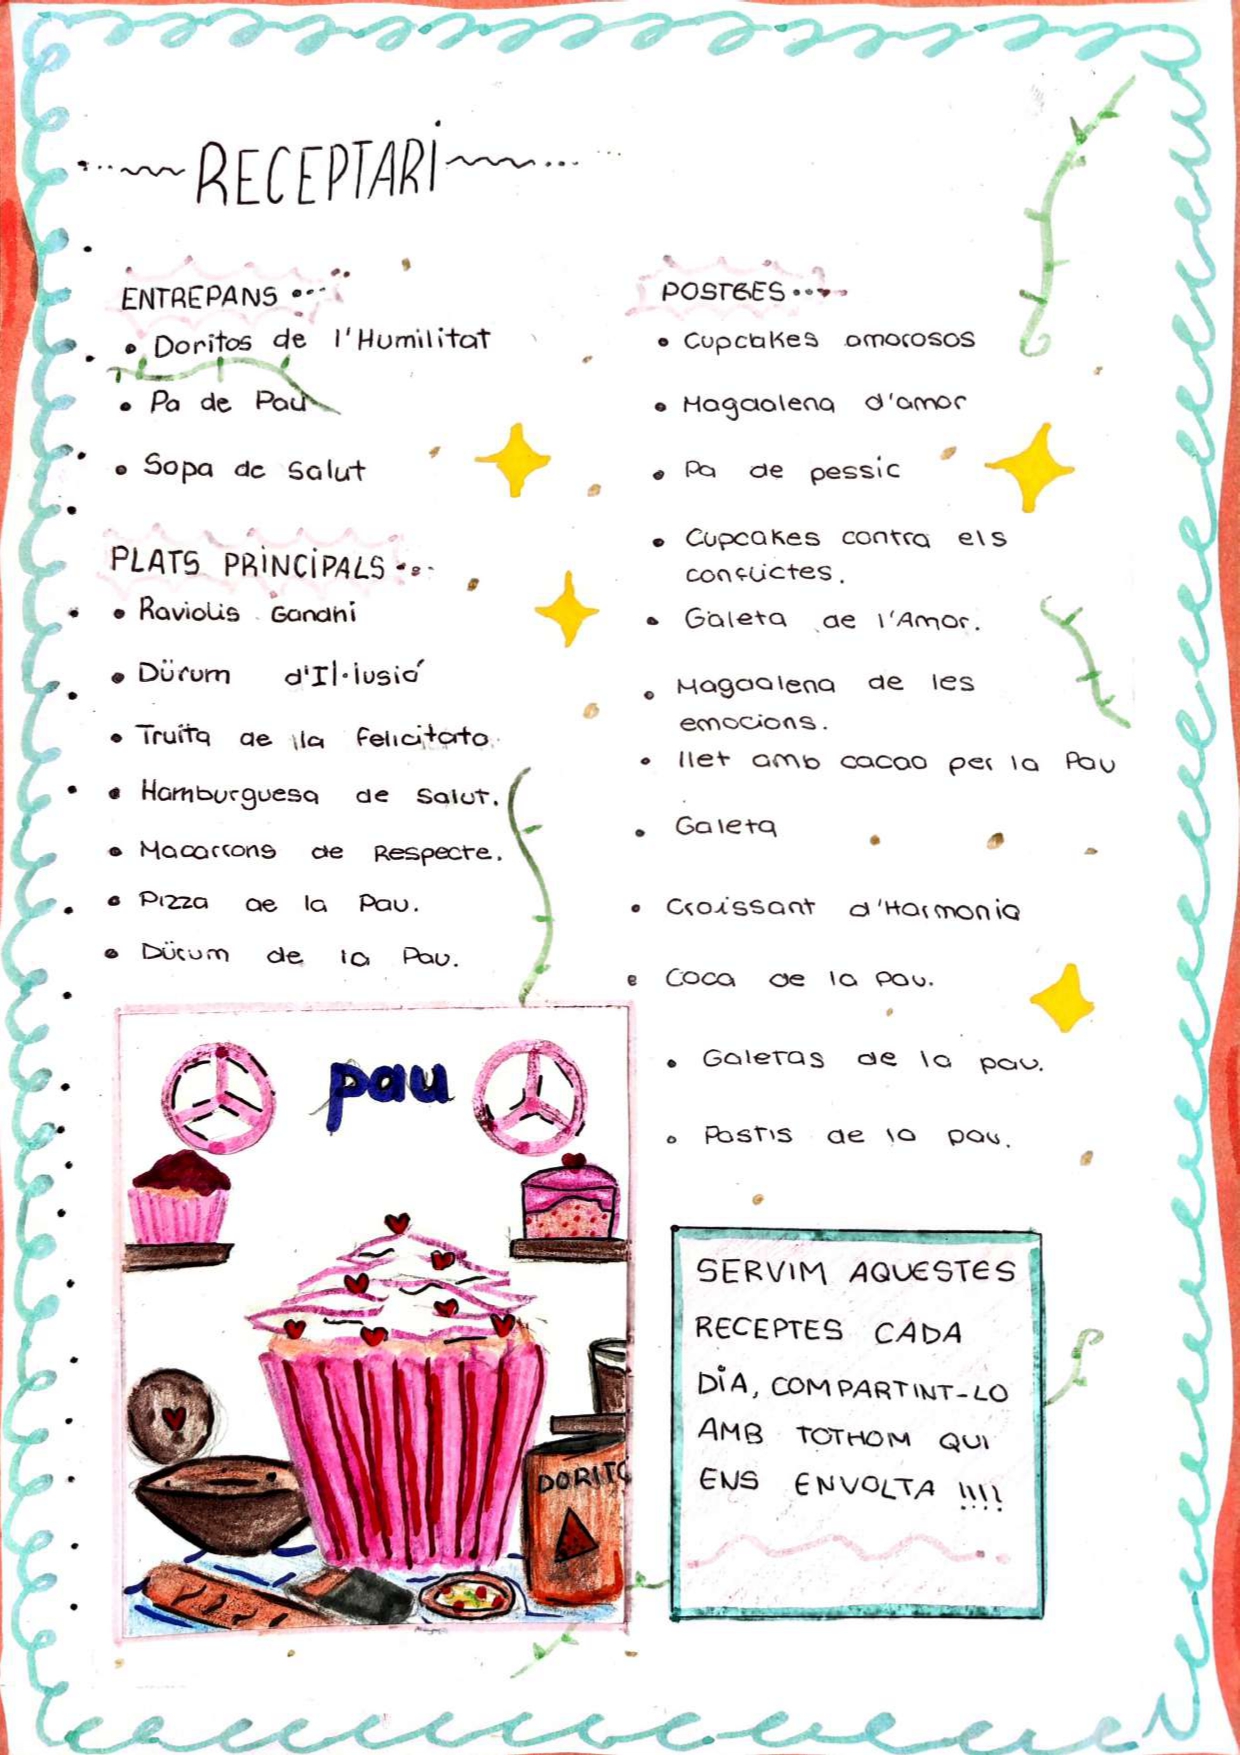 RECEPTARI
ENTREPANS
Doritos de l'Humilitat
Pa de Pau
Sopa de Salut
PLATS PRINCIPALS
Raviolis Gandhi
Dürum d'Il·lusió
Truita de lla felicitato.
Hamburguesa de Salut.
Macarrons de Respecte.
Pizza de la Pau.
Dürum de la Pau.
POSTRES
Cupcakes amorosos
Magdalena d'amor
Pa de pessic
Cupcakes contra els
conflictes.
Galeta de l'Amor.
Magdalena de les
emocions.
llet amb cacao per la Pau
Galeta
Croissant d'Harmonia
Coca de la pau.
Galetas de la pau.
Pastis de la pau.
pau
DORITO
SERVIM AQUESTES
RECEPTES CADA
DIA, COMPARTINT-LO
AMB TOTHOM QUI
ENS ENVOLTA !!!!